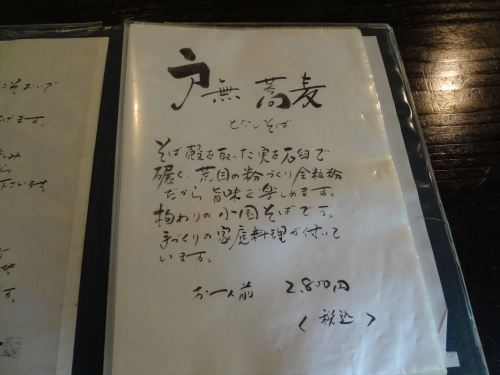 戸無 蕎麦
となしそば
そば殻を取った実を石臼で
碾く、荒目の粉づくり全粒粉
だから旨味を楽しめます。
拘わりの小国そばです。
手づくりの家庭料理が付いて
います。
お一人前 2,800円
〈税込〉
ます。